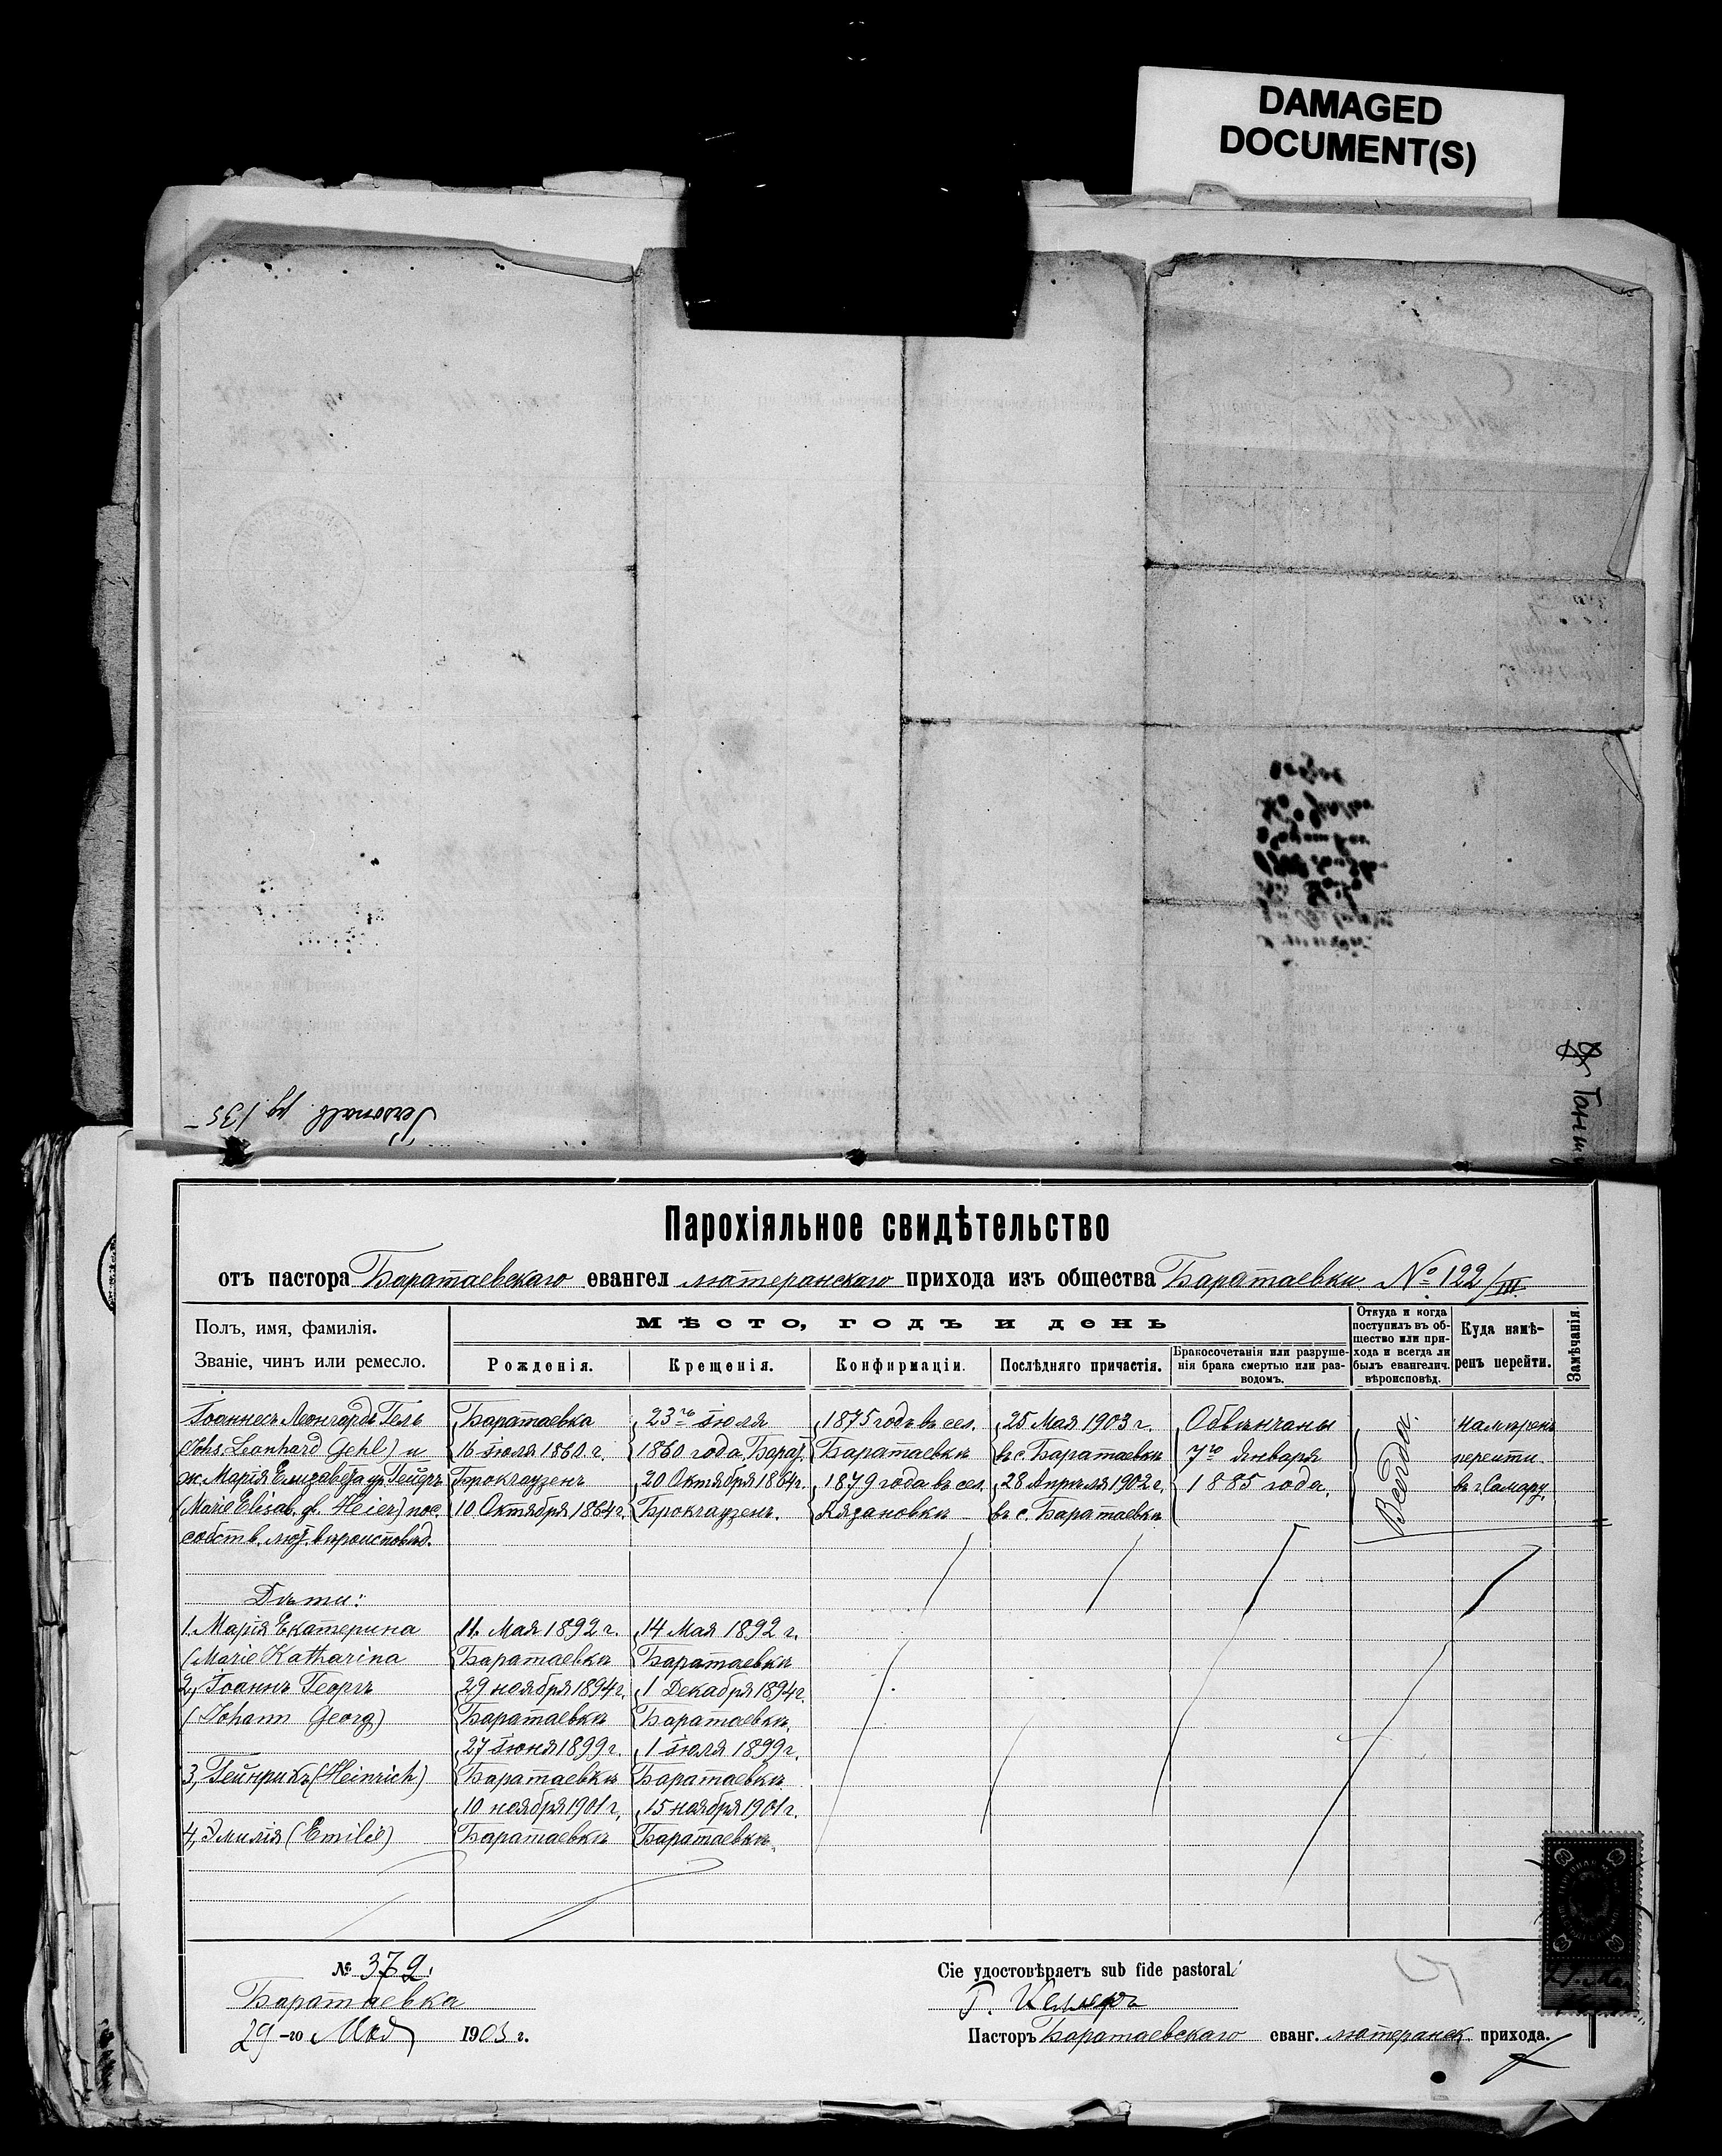 DAMAGED
DOCUMENT(S)
Personalb. pg. 135
Парохіяльное свидѣтельство
отъ пастора Баратаевскаго евангел лютеранскаго прихода изъ общества Баратаевки № 122/III.
Полъ, имя, фамилія.
Званіе, чинъ или ремесло.
Мѣсто, годъ и день
Рожденія.
Крещенія.
Конфирмаціи.
Послѣдняго причастія.
Бракосочетанія или разруше-
нія брака смертью или раз-
водомъ.
Откуда и когда
поступилъ въ об-
щество или при-
хода и всегда ли
былъ евангелич.
вѣроисповѣд.
Куда намѣ-
ренъ перейти.
Замѣчанія.
Іоаннесъ Леонгардъ Гель
(Johs. Leonhard Gehl) и
ж. Марія Елизавета ур. Гейеръ
(Marie Elisab. g. Heier) пос.
собств. лют. вѣроисповѣд.
Баратаевка
16 Іюля 1860 г.
Брокгаузенъ
10 Октября 1864 г.
23го Іюля
1860 года, Барат.
20 Октября 1864 г.
Брокгаузенъ.
1875 годъ въ сел.
Баратаевкѣ
1879 года въ сел.
Рязановкѣ
25 Мая 1903 г.
въ с. Баратаевкѣ
28 Апрѣля 1902 г.
въ с. Баратаевкѣ
Обвѣнчаны
7го Января
1885 года.
Всегда.
намѣренъ
перейти
въ г. Самару.
Дѣти:
1. Марія Екатерина 11. Мая 1892 г. 14 Мая 1892 г.
(Marie Katharina Баратаевка Баратаевкѣ
2, Іоаннъ Георгъ 29 ноября 1894 г. 1 Декабря 1894 г.
(Johann Georg) Баратаевкѣ Баратаевкѣ
27 Іюня 1899 г. 1 Іюля 1899 г.
3, Гейнрихъ (Heinrich) Баратаевкѣ Баратаевкѣ
10 ноября 1901 г. 15 ноября 1901 г.
4, Эмилія (Emilie) Баратаевкѣ Баратаевкѣ
№ 372.
Баратаевка
29-го Мая 1903 г.
Сіе удостовѣряетъ sub fide pastorali
Г. Келлеръ
Пасторъ Баратаевскаго еванг. лютеранск прихода.